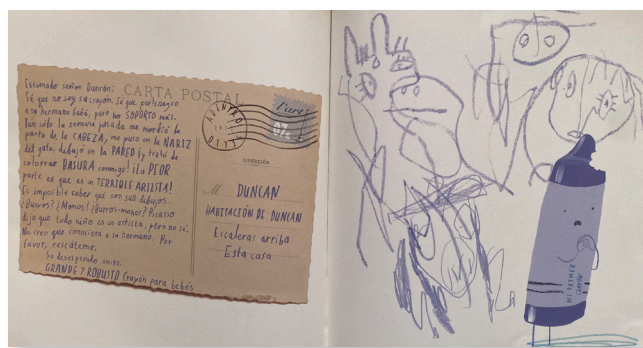 CARTA POSTAL
Estimado señor Duncan:
Sé que no soy su crayón. Sé que pertenezco
a su hermano bebé, pero no SOPORTO más.
Tan sólo la semana pasada me mordió la
punta de la CABEZA, me puso en la NARIZ
del gato, dibujó en la PARED ¡y trató de
colorear BASURA conmigo! ¡La PEOR
parte es que es un TERRIBLE ARTISTA!
Es imposible saber qué son sus dibujos.
¿Buyes? ¿Monos? ¿Burros-monos? Picasso
dijo que todo niño es un artista, pero no sé.
No creo que conociera a su hermano. Por
favor, rescáteme.
Su desesperado amigo,
GRANDE Y ROBUSTO Crayón para bebés
DUNCAN
HABITACIÓN DE DUNCAN
Escaleras arriba
Esta casa
MI PRIMER
CRAYÓN